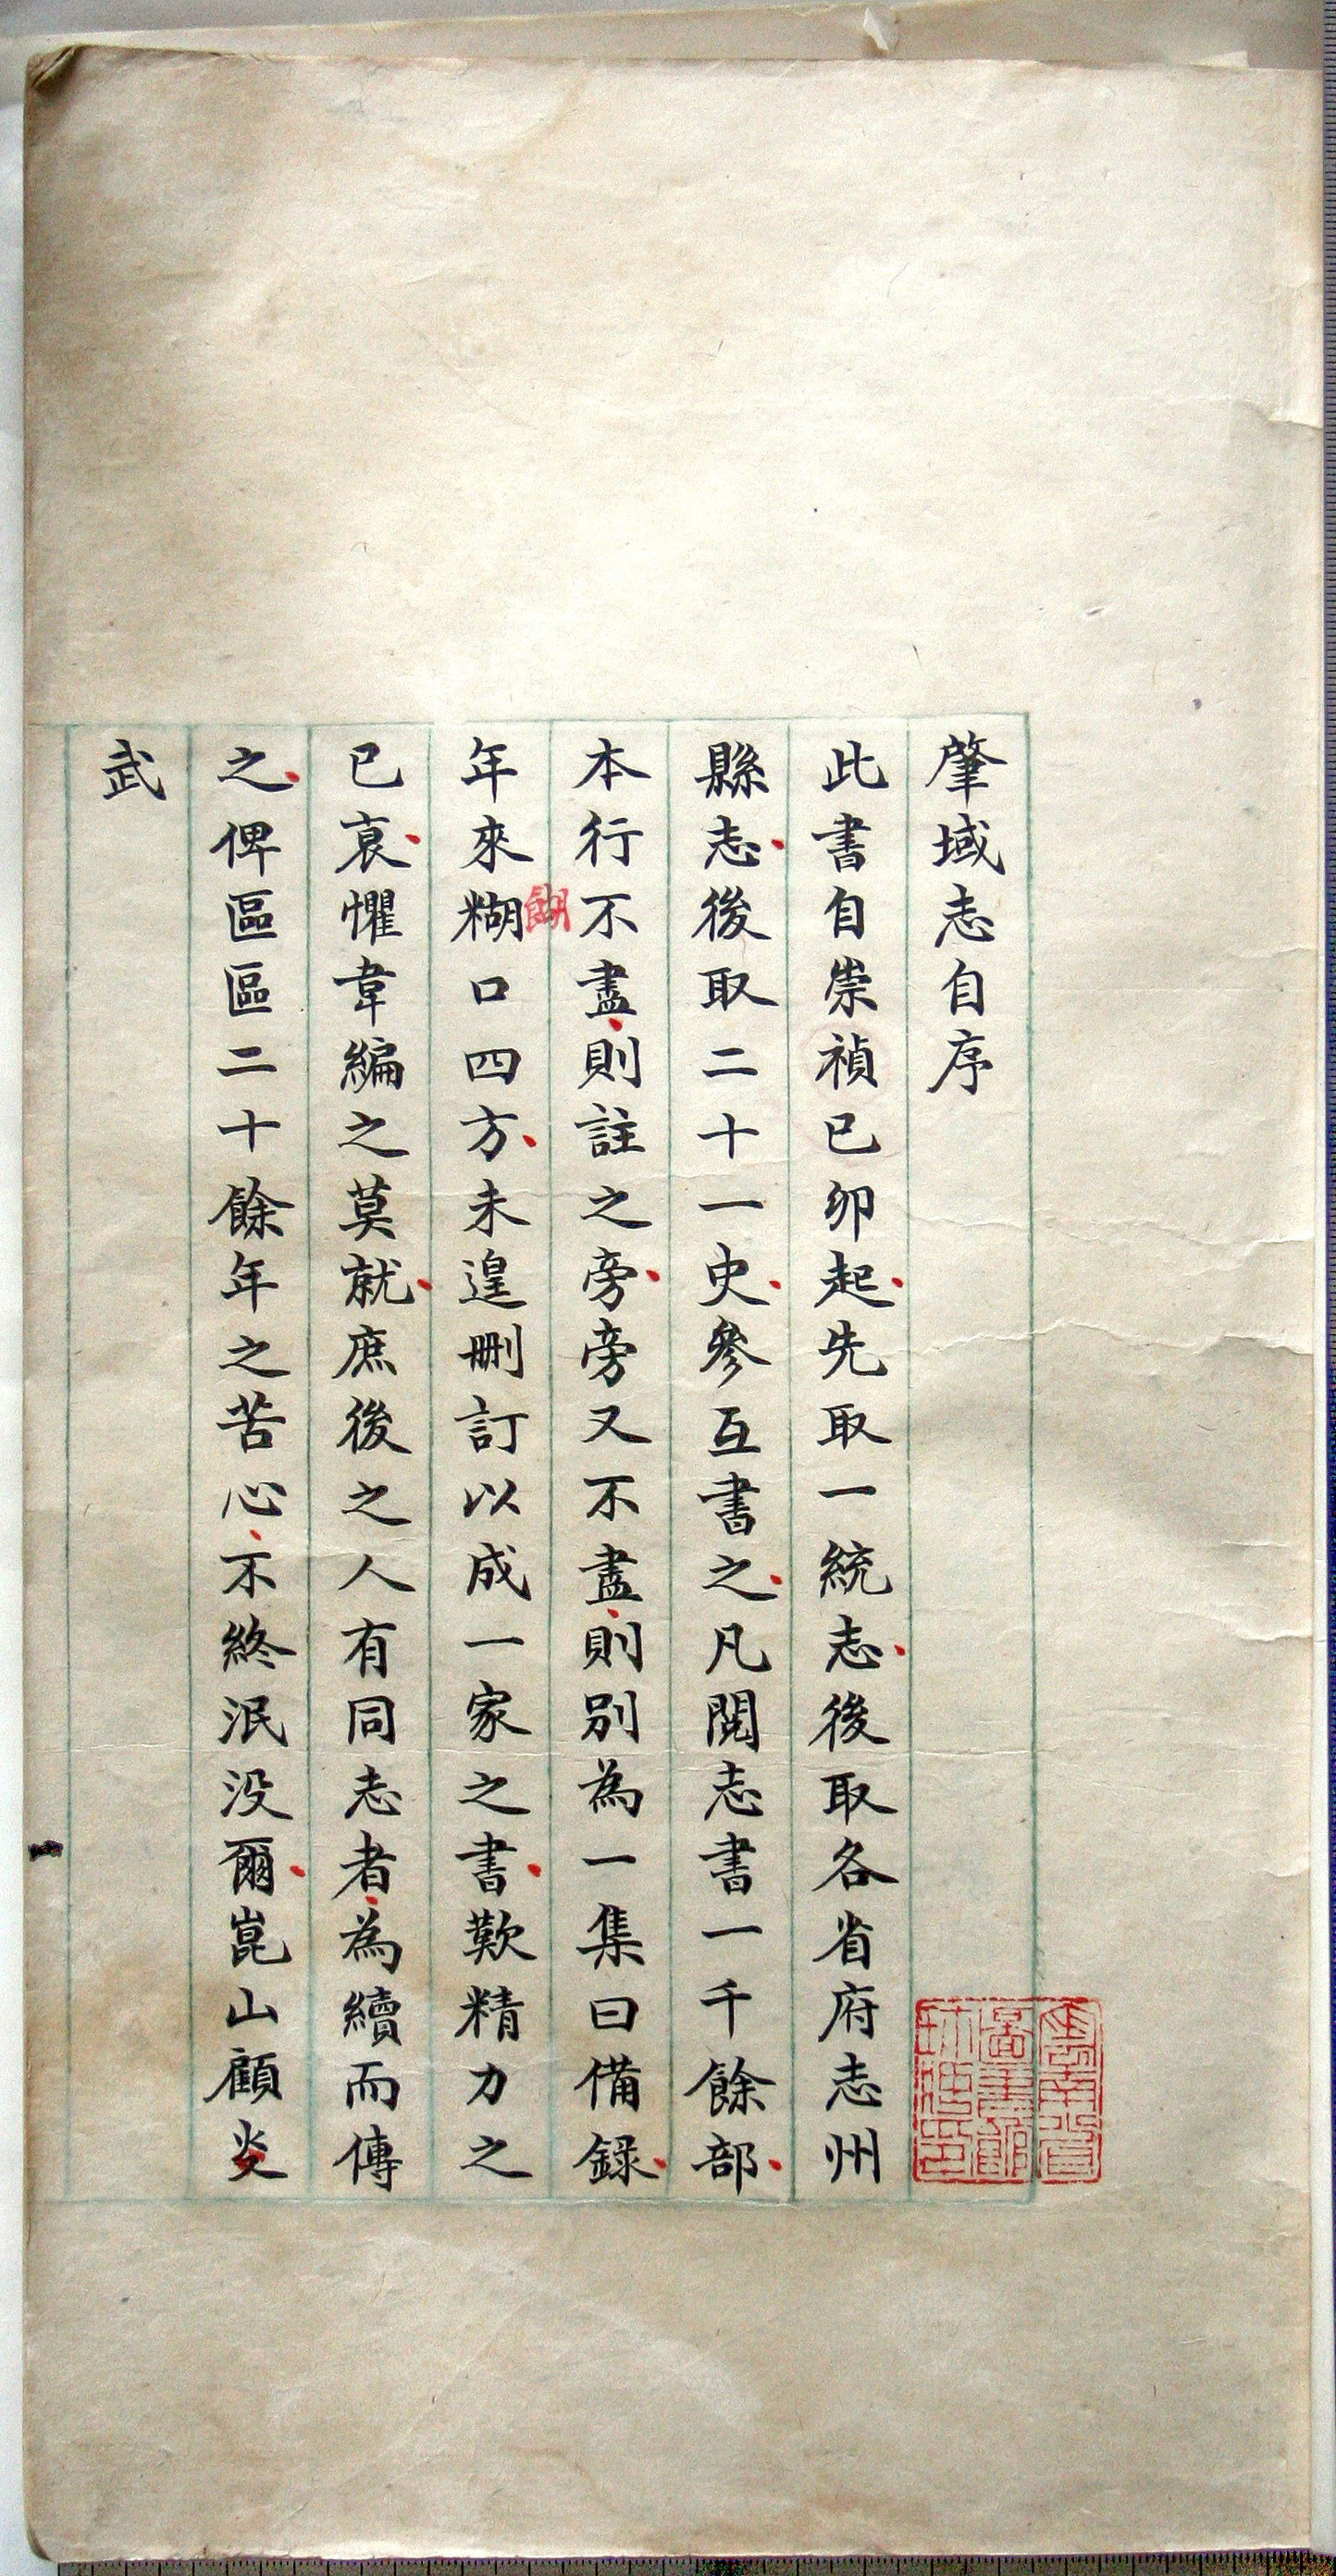 肇域志自序
此書自崇禎已卯起先取一統志後取各省府志州
縣志後取二十一史參互書之凡閱志書一千餘部
本行不盡則註之旁旁又不盡則别為一集曰備録
餬
年來糊口四方未遑删訂以成一家之書歎精力之
已衰懼韋編之莫就庶後之人有同志者為續而傳
之俾區區二十餘年之苦心不終泯没爾崑山顧炎
武
一
雲南省
圖書館
珍藏印